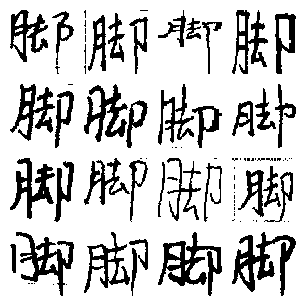 脚脚脚脚
脚脚脚脚
脚脚脚脚
脚脚脚脚